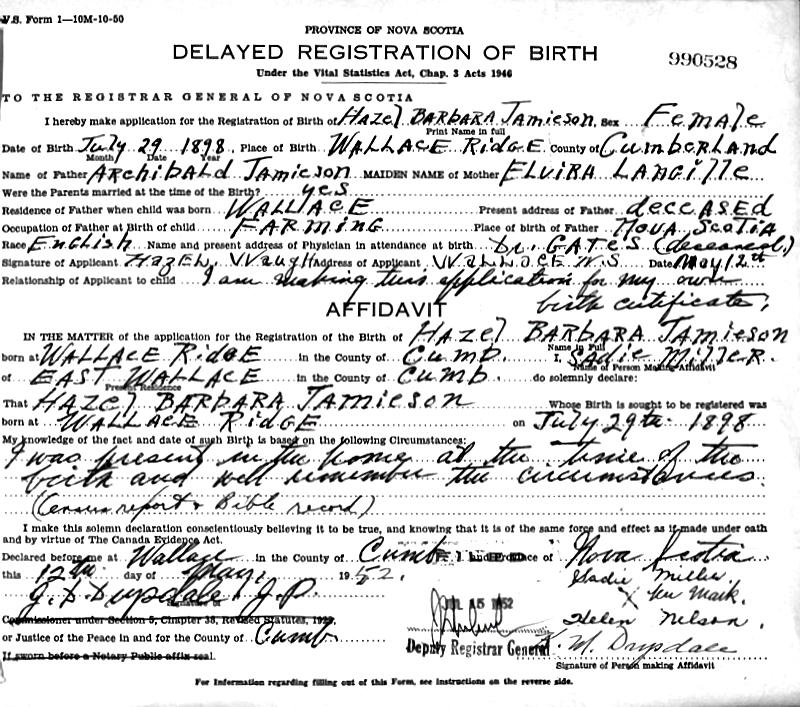 V.S. Form 1—10M-10-50
PROVINCE OF NOVA SCOTIA
DELAYED REGISTRATION OF BIRTH
990528
Under the Vital Statistics Act, Chap. 3 Acts 1946
TO THE REGISTRAR GENERAL OF NOVA SCOTIA
I hereby make application for the Registration of Birth of Hazel Barbara Jamieson Sex Female
Print Name in full
Date of Birth July 29 1898, Place of Birth Wallace Ridge County of Cumberland
Month Date Year
Name of Father Archibald Jamieson MAIDEN NAME of Mother Elvira Langille
Were the Parents married at the time of the Birth? yes
Residence of Father when child was born Wallace Present address of Father deceased
Occupation of Father at Birth of child Farming Place of birth of Father Nova Scotia
Race English Name and present address of Physician in attendance at birth Dr. Gates (deceased.)
Signature of Applicant Hazel Waugh Address of Applicant Wallace N.S Date May 12th
Relationship of Applicant to child I am making this application for my own
birth certificate.
AFFIDAVIT
IN THE MATTER of the application for the Registration of the Birth of Hazel Barbara Jamieson
Name in Full
born at Wallace Ridge in the County of Cumb. I, Sadie Miller.
Name of Person Making Affidavit
of East Wallace in the County of Cumb. do solemnly declare:
Present Residence
That Hazel Barbara Jamieson Whose Birth is sought to be registered was
born at Wallace Ridge on July 29th 1898
My knowledge of the fact and date of such Birth is based on the following Circumstances:
I was present in the home at the time of the
birth and well remember the circumstances.
(Census report & Bible record)
I make this solemn declaration conscientiously believing it to be true, and knowing that it is of the same force and effect as if made under oath
and by virtue of The Canada Evidence Act.
Declared before me at Wallace in the County of Cumb Province of Nova Scotia
this 12th day of May, 1952.
Sadie Miller
X her Mark.
J. D. Drysdale J.P.
JUL 15 1952
Commissioner under Section 5, Chapter 38, Revised Statutes, 1923,
Helen Nelson.
or Justice of the Peace in and for the County of Cumb.
Deputy Registrar General
M Drysdale
If sworn before a Notary Public affix seal.
Signature of Person making Affidavit
For Information regarding filling out of this Form, see instructions on the reverse side.